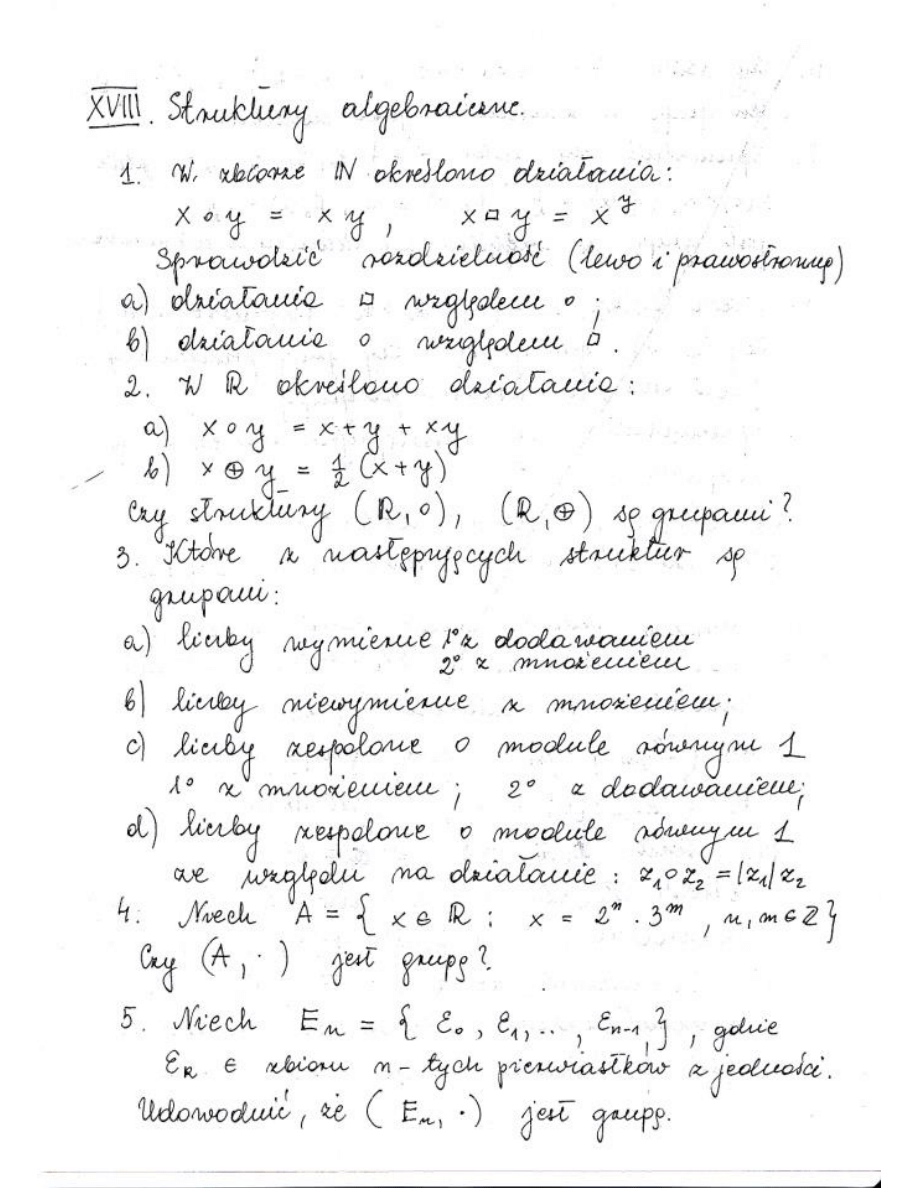 XVIII. Struktury algebraiczne.
1. W zbiorze ℕ określono działania:
x ∘ y = x y, x □ y = x^y
Sprawdzić rozdzielność (lewo i prawostronną)
a) działania □ względem ∘;
b) działania ∘ względem □.
2. W ℝ określono działania:
a) x ∘ y = x + y + xy
b) x ⊕ y = 1/2 (x + y)
Czy struktury (ℝ, ∘), (ℝ, ⊕) są grupami?
3. Które z następujących struktur są
grupami:
a) liczby wymierne 1° z dodawaniem
2° z mnożeniem
b) liczby niewymierne z mnożeniem;
c) liczby zespolone o module równym 1
1° z mnożeniem; 2° z dodawaniem;
d) liczby zespolone o module równym 1
ze względu na działanie: z₁∘z₂ = |z₁| z₂
4. Niech A = { x ∈ ℝ : x = 2ⁿ · 3ᵐ, n, m ∈ ℤ }
Czy (A, ·) jest grupą?
5. Niech Eₙ = { ε₀, ε₁, .., εₙ₋₁, }, gdzie
εₖ ∈ zbioru n-tych pierwiastków z jedności.
Udowodnić, że (Eₙ, ·) jest grupą.